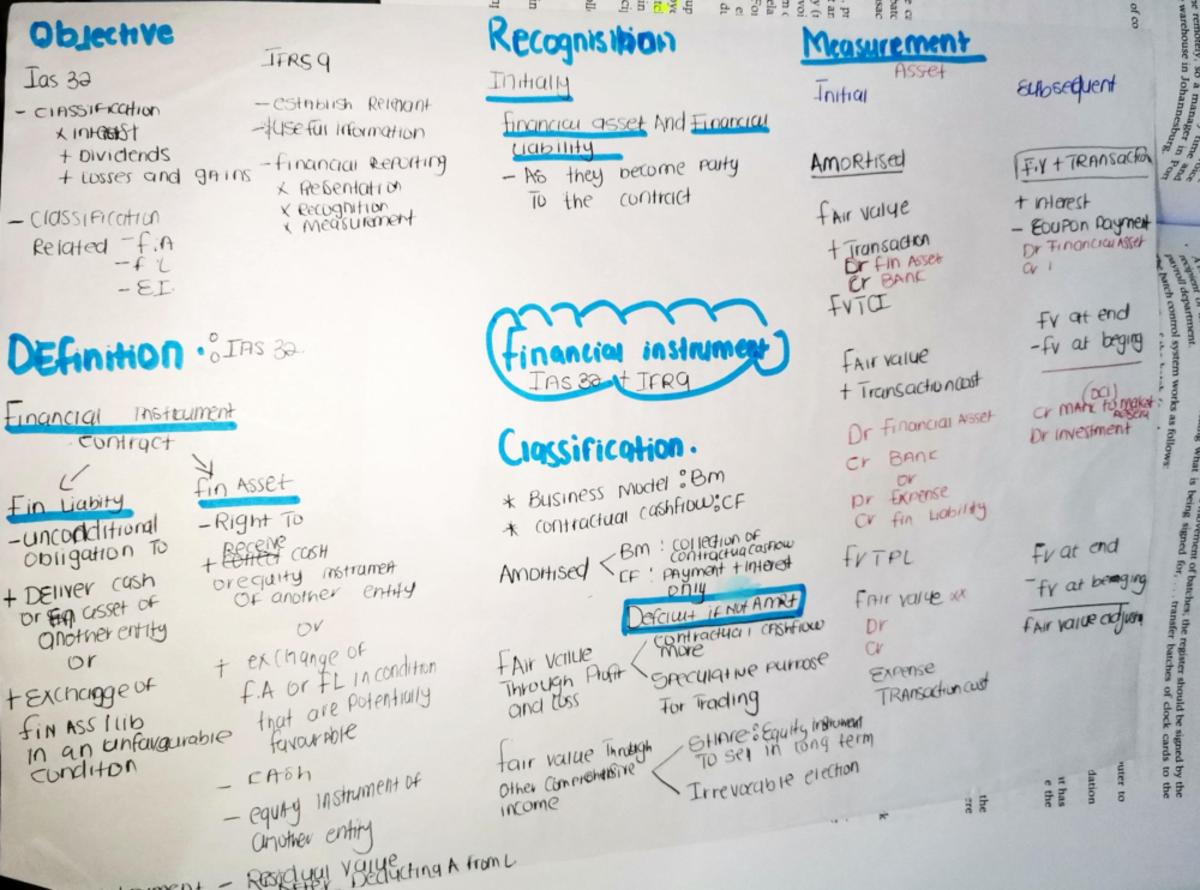 Objective
Ias 32
- Classification
x interest
+ Dividends
+ Losses and gains
- Classification
Related - f.A
- f L
- E.I.
IFRS 9
- establish Relevant
- Useful information
- financial Reporting
x Presentation
x Recognition
x Measurement
DEfinition : IAS 32
Financial instrument
Contract
Fin Liabity
- unconditional
obligation To
+ DEliver cash
or asset of
another entity
or
+ Exchange of
fin Ass / lib
in an unfavourable
conditon
fin Asset
- Right To
receive
+ cash
or equity instrument
OF another entity
or
+ exchange of
f.A or FL in condition
that are potentially
favourable
- CAsh
- equity instrument of
another entity
- Residual value
After Deducting A from L
Recognisition
Initially
financial asset And Financial
Liability
- As they become party
To the contract
financial instrument
IAS 32 + IFR9
Classification.
* Business Model : Bm
* contractual cashflow : CF
Amortised
Bm : collection of
contractual cashflow
CF : payment + interest
only
Default if Not AMRT
FAir value
Through Profit
and Loss
contractual cashflow
more
Speculative purpose
For Trading
fair value Through
Other Comprehensive
income
Share : Equity instrument
To sell in long term
Irrevocable election
Measurement
Asset
Initial
Amortised
fAir value
+ Transaction
Dr Fin Asset
Cr BANK
fVTCI
fAir value
+ Transaction cost
Dr Financial Asset
Cr BANK
or
Dr Expense
Cr fin liability
fVTPL
fAir value xx
Dr
Cr
Expense
TRAnsaction cost
Subsequent
F.V + TRANSACTION
+ interest
- Coupon Payment
Dr Financial Asset
Cr
fv at end
- fv at beging
(OCI)
Cr MARk To market
Dr investment
Fv at end
- fv at beginging
fAir value adjusm